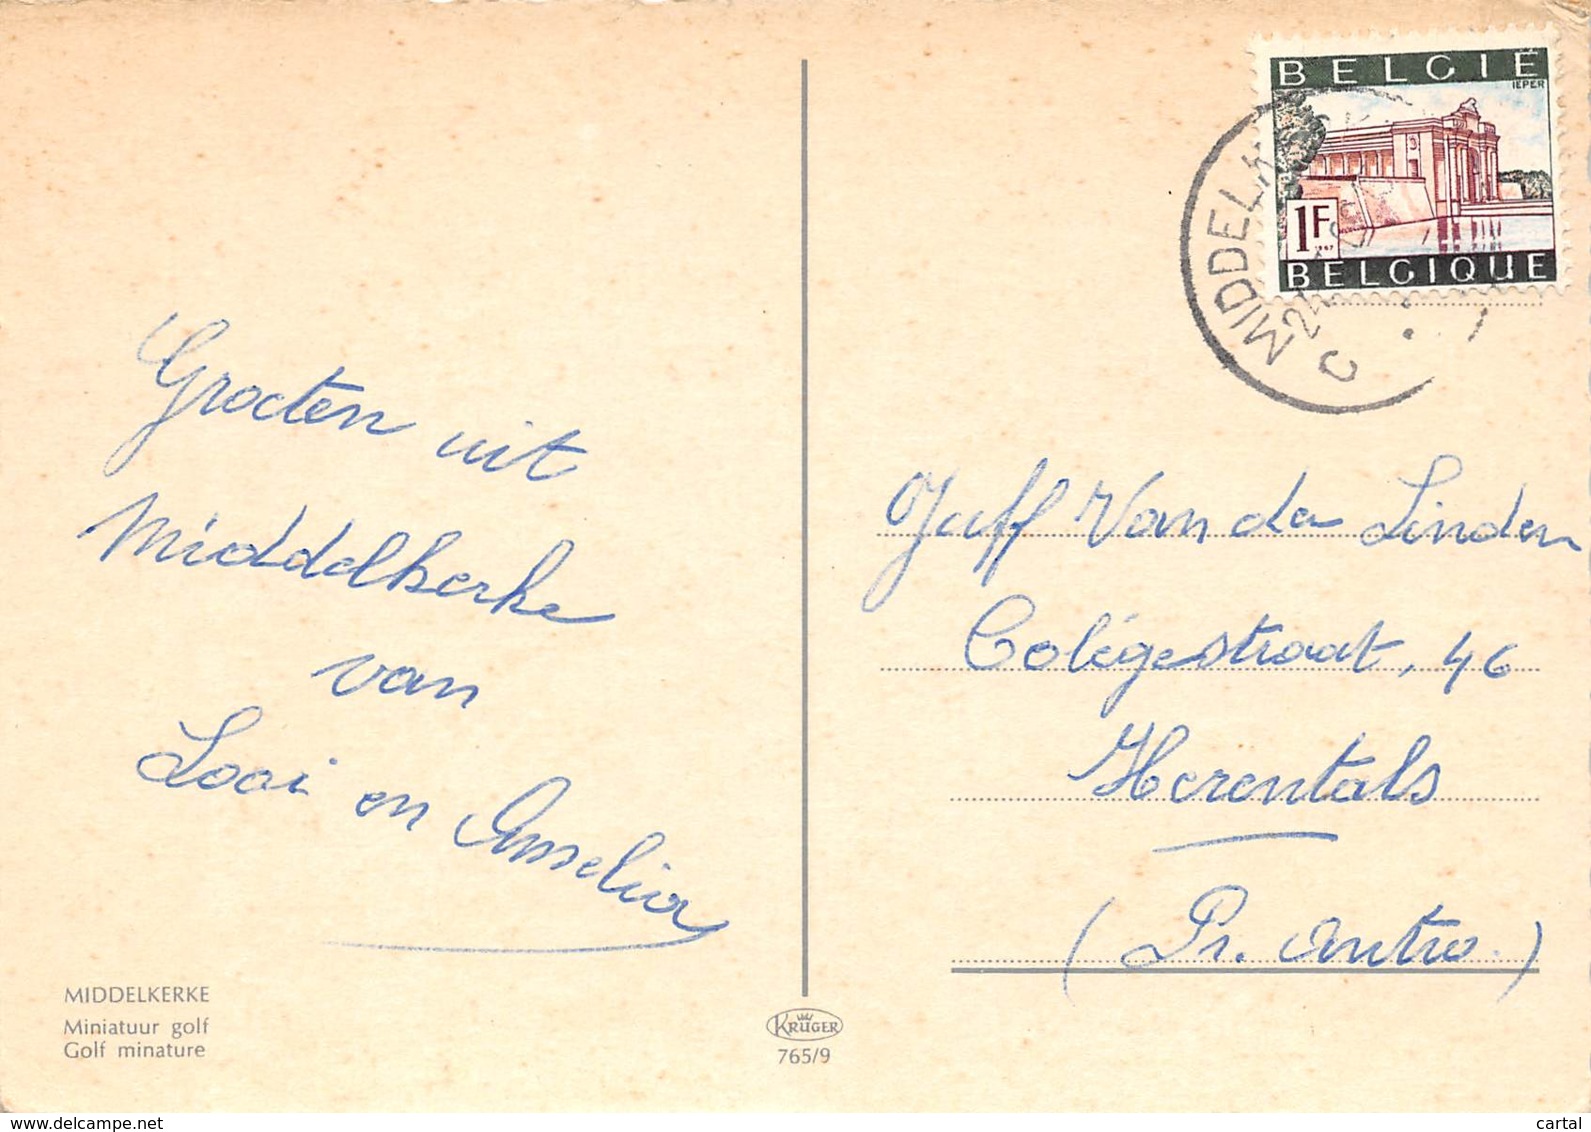 BELGIË
IEPER
1F
1967
BELGIQUE
MIDDELK
C
Groeten uit
Middelkerke
van
Looi en Amelia
Juff Van der Linden
Colégestraat, 46
Herentals
(Pr. Antw.)
MIDDELKERKE
Miniatuur golf
Golf minature
KRÜGER
765/9
www.delcampe.net
cartal